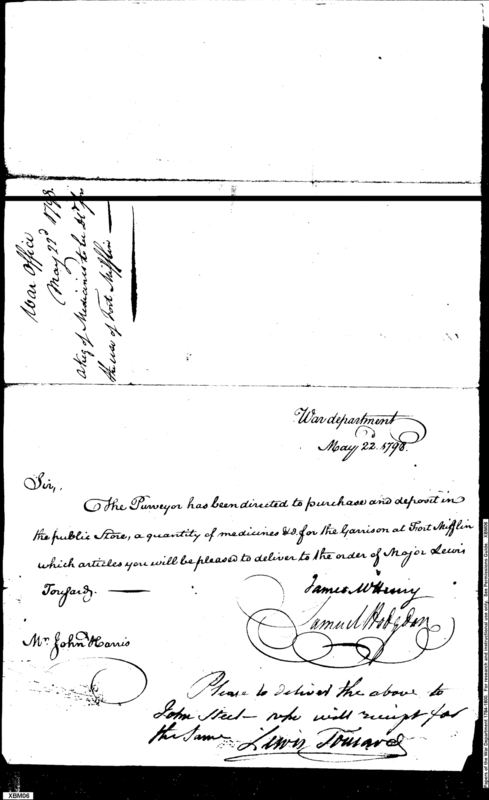 War Office
May 22d 1798
A Keg of Medicines to be dd for
the use of Fort Mifflin
War department
May 22d 1798.
Sir,
The Purveyor has been directed to purchase and deposit in
the public Store, a quantity of medicines &c. for the Garrison at Fort Mifflin
which articles you will be pleased to deliver to the order of Major Lewis
Tousard.
James McHenry
Samuel Hodgdon
Mr John Harris
Please to deliver the above to
John Steel who will receipt for
the same Lewis Tousard
Papers of the War Department 1784-1800. For research and noncommercial use only. See Permissions Guide. XBM06
XBM06